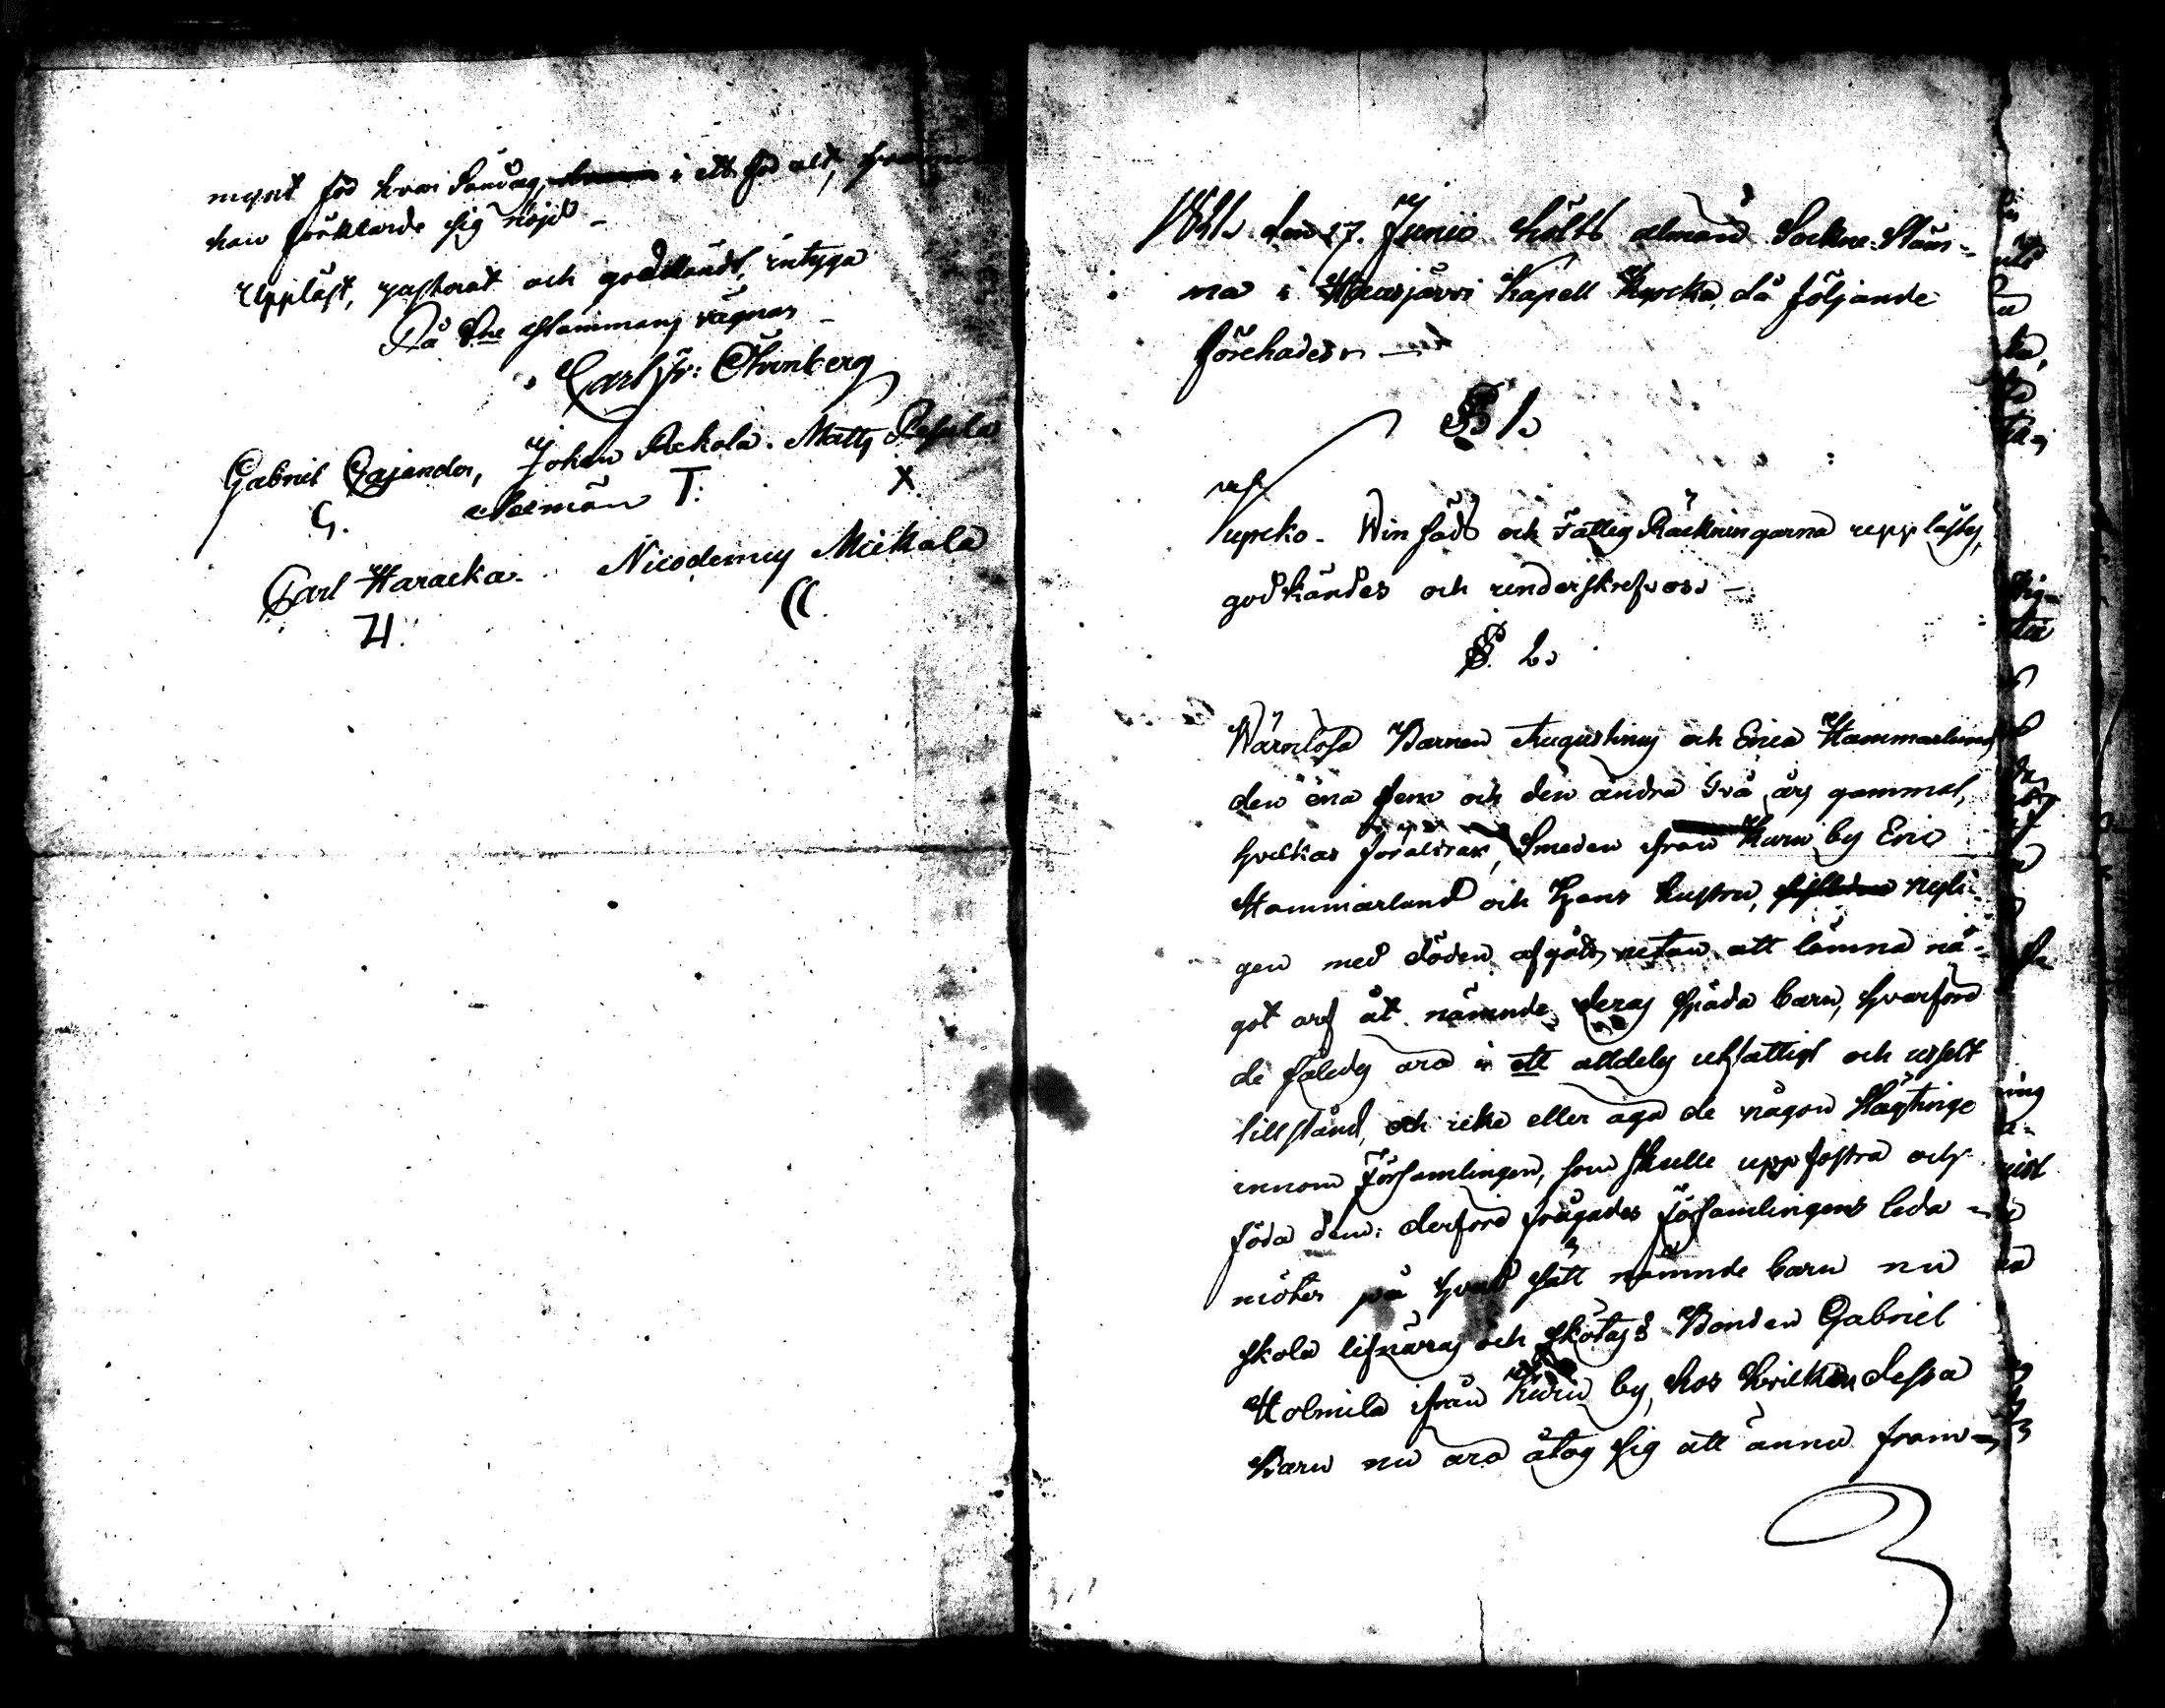 mynt för hvar Söndag, i ett för alt, hvarmed
han förklarde sig nöjd —
Uppläst, justerat och godkändt, intyga
På Sne Stämmans vägnar —
Carl Fr: Öhrnberg
Gabriel Cajander, Johan Rekola. Matts
G. Neiman T. X
Carl Haracka. Nicodemus Mickola
H.
den 17. Junii hölts almän Sockne Stäm-
ma i Kapell Kyrcka, då följande
förehades. —
§ 1.
Kyrcko- Winsäds och Fattig Räckningarna upplästes,
godkändes och underskrefvos. —
§ 2.
Wärnlösa Barnen Augustinus och Erica Hammarlund
den ena fem och den andra två års gammal,
hvilkas föräldrar, Smeden från Kuru by Eric
Hammarlund och Hans hustru, nyli-
gen med döden afgått, utan att lämna nå-
got arf åt nämnde deras späda barn, hvarföre
de således äro i ett alldeles utfattigt och uselt
tillstånd, och icke eller äga de någon Slägtinge
innom Församlingen, som skulle uppfostra och
föda dem: derföre frågades församlingens leda-
möter på hvad sätt nämnde barn nu
skola lifnäras och skötas? Bonden Gabriel
Holmila ifrån Kuru by, hos hvilken dessa
Barn nu äro åtog sig att ännu fram-